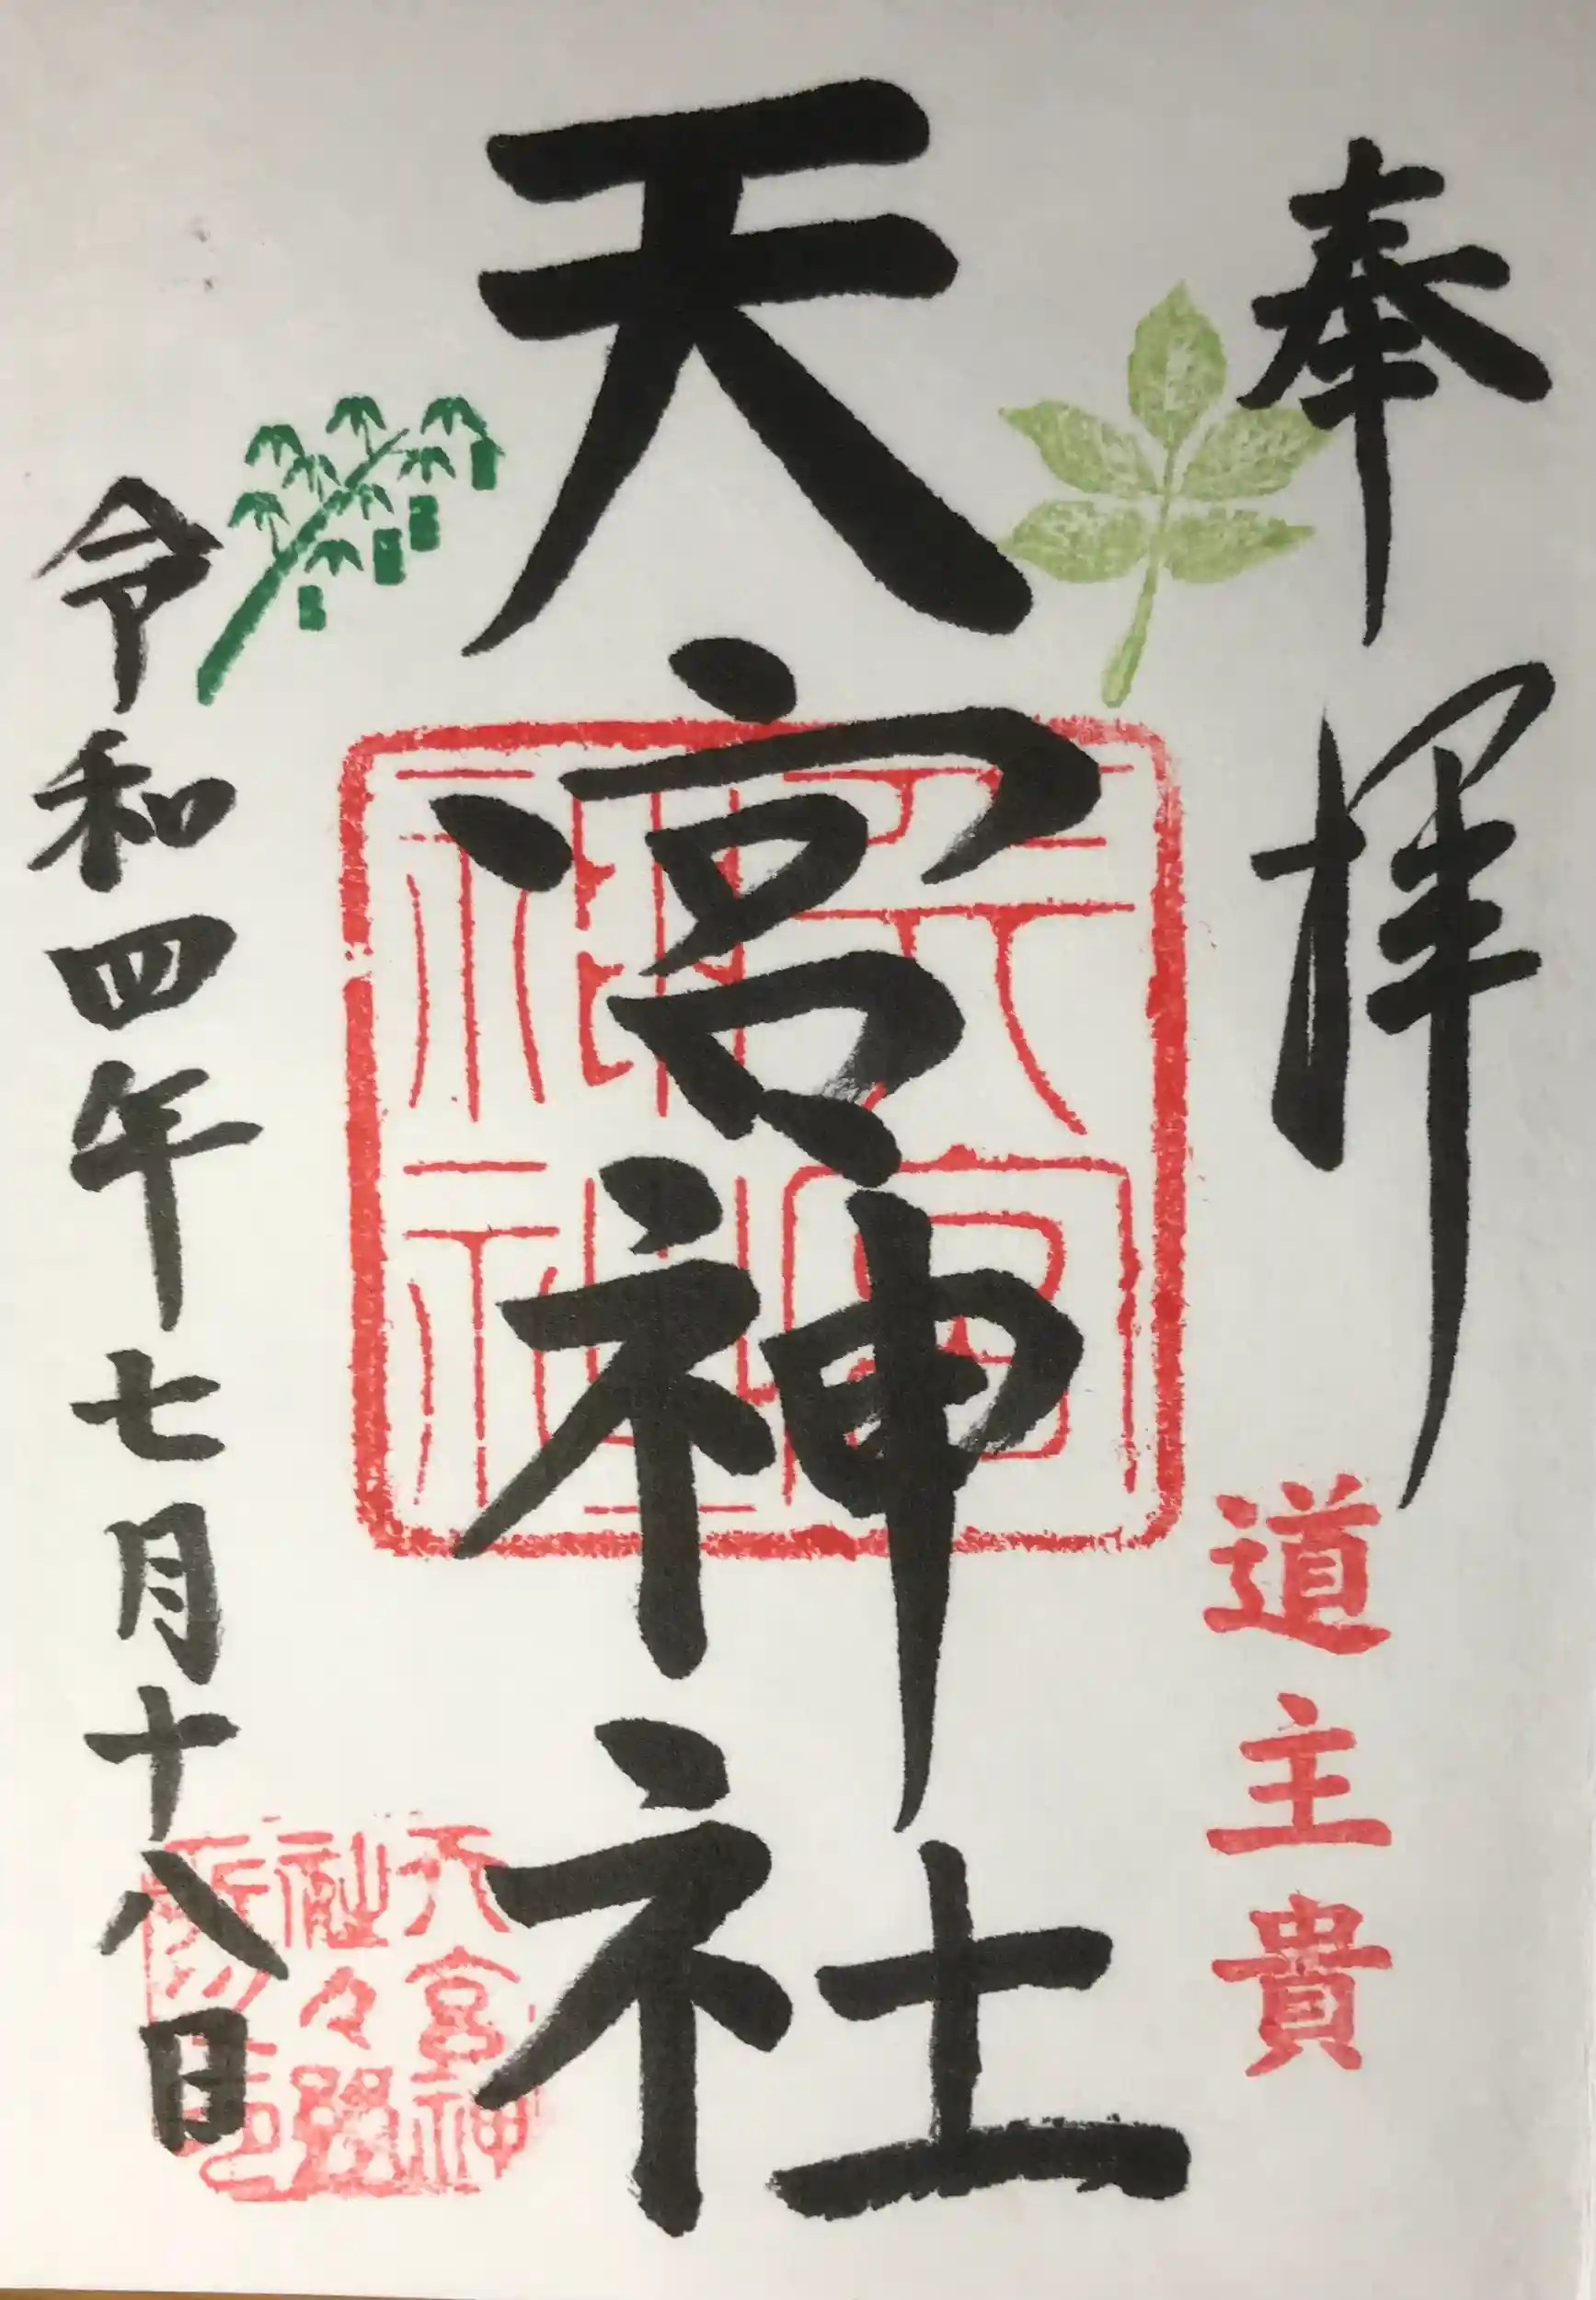 奉拝
道主貴
天宮神社
天宮神社
令和四年七月十八日
天宮神
社々務